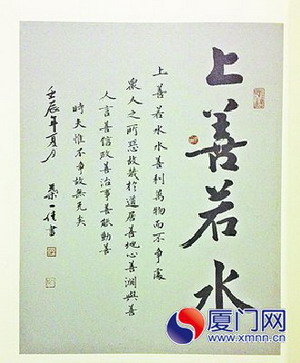 上善若水
上善若水水善利萬物而不争處
衆人之所惡故幾於道居善地心善淵與善
人言善信政善治事善能動善
時夫惟不争故無尤矣
壬辰年夏月
厦门网
www.xmnn.cn